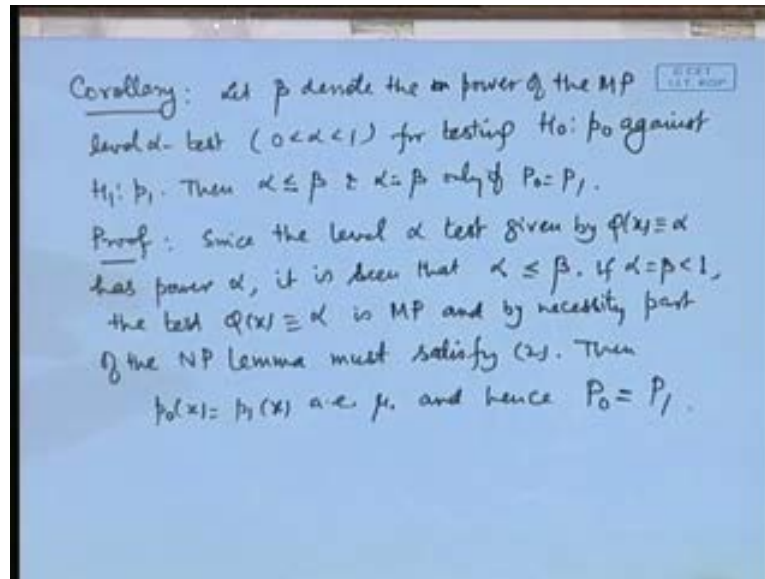 Corollary: Let β denote the power of the MP
level α- test (0<α<1) for testing H0: p0 against
H1: p1. Then α ≤ β & α=β only if P0=P1.
Proof: Since the level α test given by φ(x)≡α
has power α, it is seen that α ≤ β. If α=β<1,
the test φ(x)≡α is MP and by necessity part
of the NP Lemma must satisfy (2). Then
p0(x)= p1(x) a.e. μ. and hence P0 = P1.